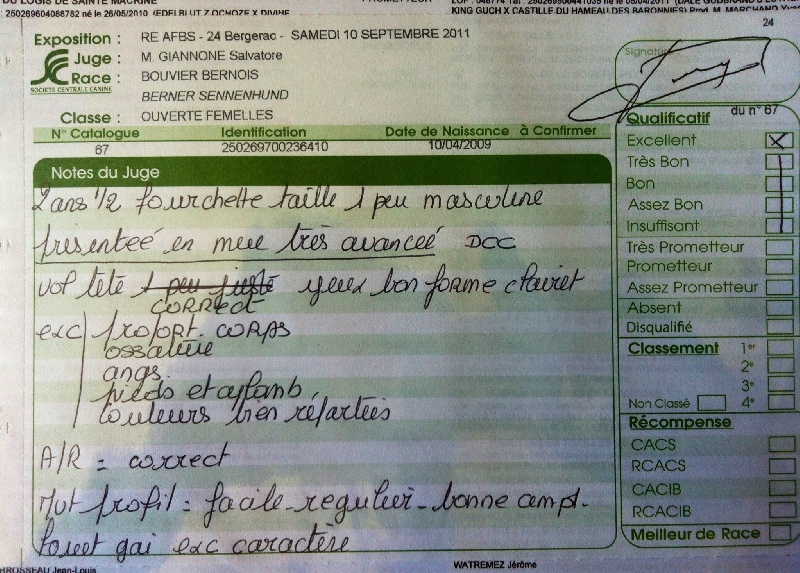 DU LOGIS DE SAINTE MACRINE
250269604088782 né le 26/05/2010 (EDELBLUT Z OCHOZE X DIVINE
KING GUCH X CASTILLE DU HAMEAU DES BARONNIES) Prod. M. MARCHAND
24
Exposition : RE AFBS - 24 Bergerac - SAMEDI 10 SEPTEMBRE 2011
Juge : M. GIANNONE Salvatore
Race : BOUVIER BERNOIS
SOCIETE CENTRALE CANINE
BERNER SENNENHUND
Classe : OUVERTE FEMELLES
N° Catalogue Identification Date de Naissance à Confirmer
67 250269700236410 10/04/2009
Notes du Juge
2 ans 1/2 fourchette taille 1 peu masculine
presenteé en mue très avanceé DCC
vol tête 1 peu juste yeux bon forme
CORRECT
exc proport. CORPS
ossature
angs.
pieds et aplomb
couleurs bien réparties
A/R = correct
Mvt profil = facile - regulier - bonne ampl.
gai exc caractère
Signature
Qualificatif du n° 67
Excellent
Très Bon
Bon
Assez Bon
Insuffisant
Très Prometteur
Prometteur
Assez Prometteur
Absent
Disqualifié
Classement 1er
2e
3e
Non Classé 4e
Récompense
CACS
RCACS
CACIB
RCACIB
Meilleur de Race
BROSSEAU Jean-Louis
WATREMEZ Jérôme